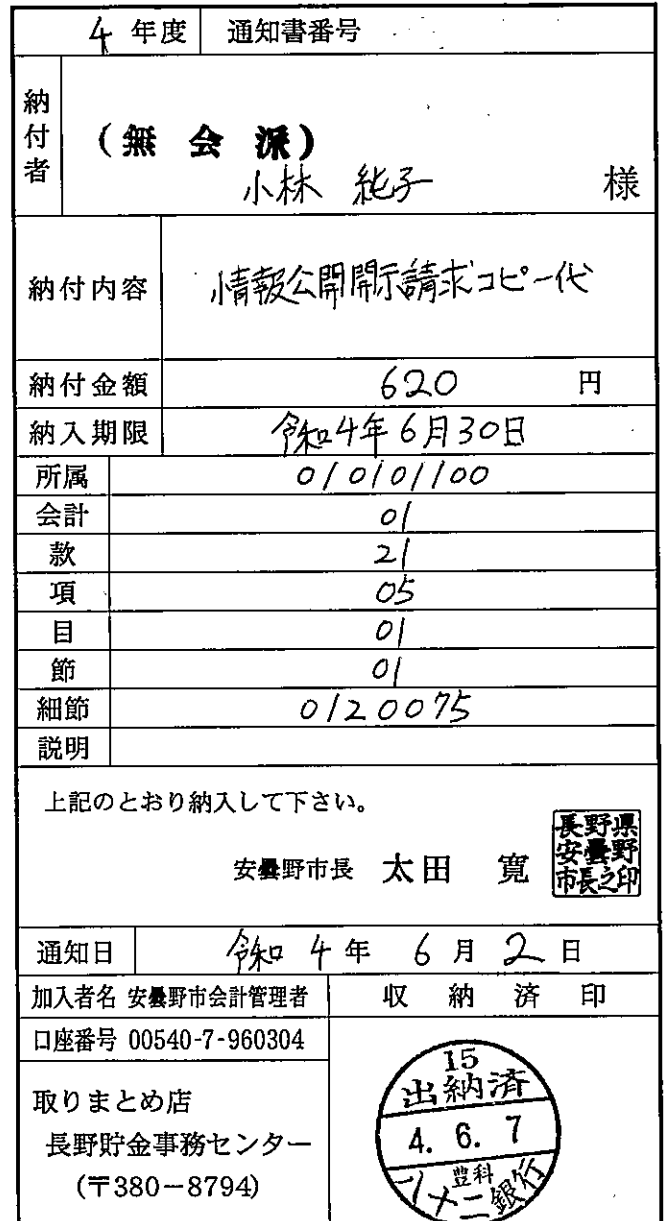 4 年度 通知書番号
納付者
(無 会 派)
小林 純子 様
納付内容 情報公開開示請求コピー代
納付金額 620 円
納入期限 令和4年6月30日
所属 010101100
会計 01
款 21
項 05
目 01
節 01
細節 0120075
説明
上記のとおり納入して下さい。
安曇野市長 太田 寛
長野県
安曇野
市長之印
通知日 令和 4 年 6 月 2 日
加入者名 安曇野市会計管理者
収 納 済 印
口座番号 00540-7-960304
取りまとめ店
長野貯金事務センター
(〒380-8794)
15
出納済
4. 6. 7
豊科
八十二銀行